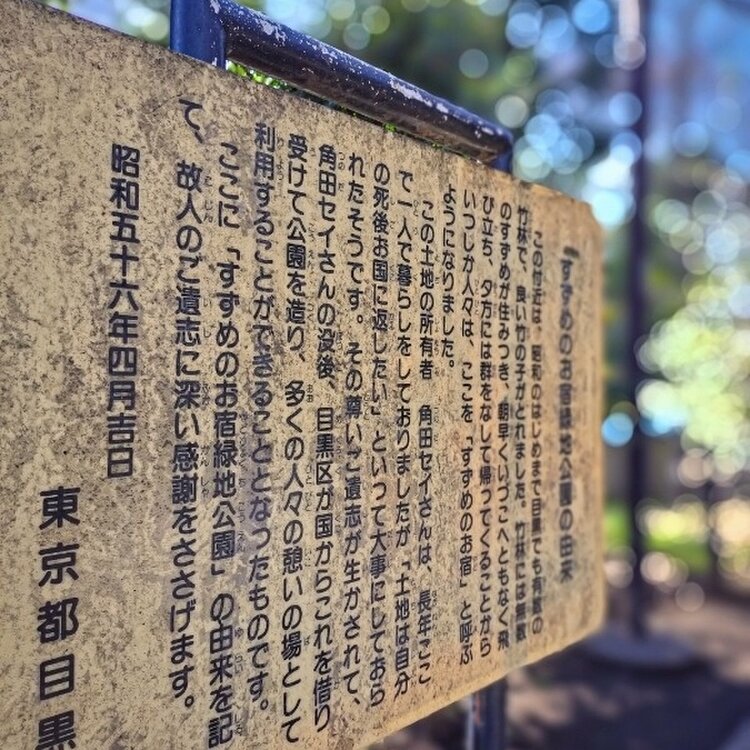 「すずめのお宿緑地公園の由来
この付近は、昭和のはじめまで目黒でも有数の
竹林で、良い竹の子がとれました。竹林には無数
のすずめが住みつき、朝早くいづこへともなく飛
び立ち、夕方には群をなして帰ってくることから
いつしか人々は、ここを「すずめのお宿」と呼ぶ
ようになりました。
この土地の所有者 角田セイさんは、長年ここ
で一人で暮らしをしておりましたが「土地は自分
の死後お国に返したい」といって大事にしておら
れたそうです。その尊いご遺志が生かされて、
角田セイさんの没後、目黒区が国からこれを借り
受けて公園を造り、多くの人々の憩いの場として
利用することができることとなったものです。
ここに「すずめのお宿緑地公園」の由来を記し
て、故人のご遺志に深い感謝をささげます。
昭和五十六年四月吉日
東京都目黒